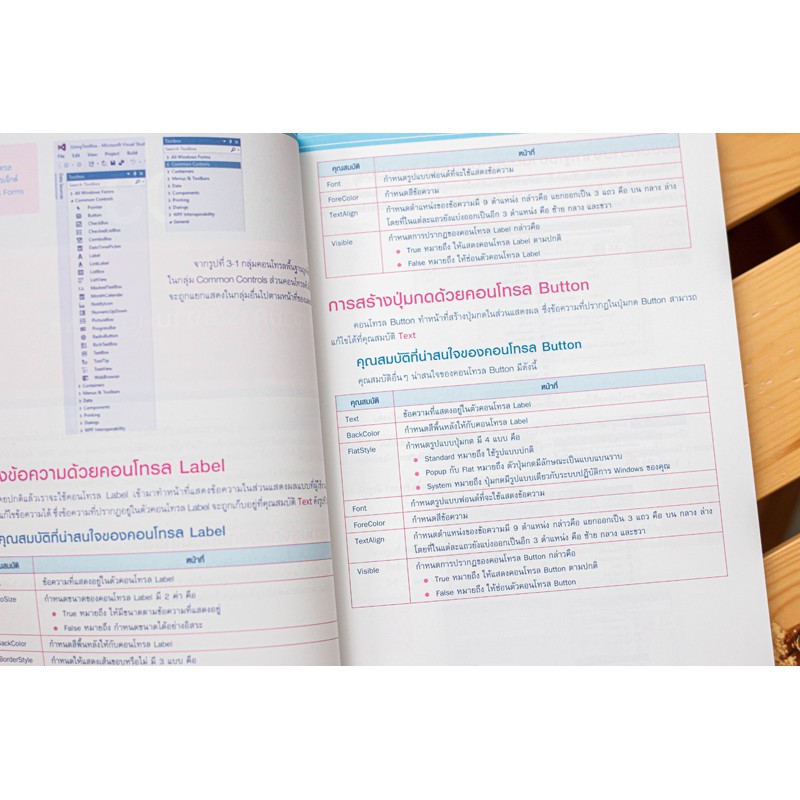 UsingTextBox - Microsoft Visual Stud
File Edit View Project Build
Toolbox
Search Toolbox
All Windows Forms
Common Controls
Pointer
Button
CheckBox
CheckedListBox
ComboBox
DateTimePicker
Label
LinkLabel
ListBox
ListView
MaskedTextBox
MonthCalendar
NotifyIcon
NumericUpDown
PictureBox
ProgressBar
RadioButton
RichTextBox
TextBox
ToolTip
TreeView
WebBrowser
Containers
Menus & Toolbars
Data
Components
Printing
Dialogs
WPF Interoperability
Toolbox
Search Toolbox
All Windows Forms
Common Controls
Containers
Menus & Toolbars
Data
Components
Printing
Dialogs
WPF Interoperability
General
Forms
จากรูปที่ 3-1 กลุ่มคอนโทรลพื้นฐาน
ในกลุ่ม Common Controls ส่วนคอนโทรล
จะถูกแยกแสดงในกลุ่มอื่นไปตามหน้าที่ของ
งข้อความด้วยคอนโทรล Label
ดยปกติแล้วเราจะใช้คอนโทรล Label เข้ามาทำหน้าที่แสดงข้อความในส่วนแสดงผลแบบที่ผู้ใช้
แก้ไขข้อความได้ ซึ่งข้อความที่ปรากฏอยู่ในตัวคอนโทรล Label จะถูกเก็บอยู่ที่คุณสมบัติ Text
คุณสมบัติที่น่าสนใจของคอนโทรล Label
สมบัติ หน้าที่
ข้อความที่แสดงอยู่ในตัวคอนโทรล Label
oSize กำหนดขนาดของคอนโทรล Label มี 2 ค่า คือ
• True หมายถึง ให้มีขนาดตามข้อความที่แสดงอยู่
• False หมายถึง กำหนดขนาดได้อย่างอิสระ
BackColor กำหนดสีพื้นหลังให้กับคอนโทรล Label
BorderStyle กำหนดให้แสดงเส้นขอบหรือไม่ มี 3 แบบ คือ
คุณสมบัติ หน้าที่
Font กำหนดรูปแบบฟอนต์ที่จะใช้แสดงข้อความ
ForeColor กำหนดสีข้อความ
TextAlign กำหนดตำแหน่งของข้อความมี 9 ตำแหน่ง กล่าวคือ แยกออกเป็น 3 แถว คือ บน กลาง ล่าง
โดยที่ในแต่ละแถวยังแบ่งออกเป็นอีก 3 ตำแหน่ง คือ ซ้าย กลาง และขวา
Visible กำหนดการปรากฏของคอนโทรล Label กล่าวคือ
• True หมายถึง ให้แสดงคอนโทรล Label ตามปกติ
• False หมายถึง ให้ซ่อนตัวคอนโทรล Label
การสร้างปุ่มกดด้วยคอนโทรล Button
คอนโทรล Button ทำหน้าที่สร้างปุ่มกดในส่วนแสดงผล ซึ่งข้อความที่ปรากฏในปุ่มกด Button สามารถ
แก้ไขได้ที่คุณสมบัติ Text
คุณสมบัติที่น่าสนใจของคอนโทรล Button
คุณสมบัติอื่นๆ น่าสนใจของคอนโทรล Button มีดังนี้
คุณสมบัติ หน้าที่
Text ข้อความที่แสดงอยู่ในตัวคอนโทรล Label
BackColor กำหนดสีพื้นหลังให้กับคอนโทรล Label
FlatStyle กำหนดรูปแบบปุ่มกด มี 4 แบบ คือ
• Standard หมายถึง ใช้รูปแบบปกติ
• Popup กับ Flat หมายถึง ตัวปุ่มกดมีลักษณะเป็นแบบแบนราบ
• System หมายถึง ปุ่มกดมีรูปแบบเดียวกับระบบปฏิบัติการ Windows ของคุณ
Font กำหนดรูปแบบฟอนต์ที่จะใช้แสดงข้อความ
ForeColor กำหนดสีข้อความ
TextAlign กำหนดตำแหน่งของข้อความมี 9 ตำแหน่ง กล่าวคือ แยกออกเป็น 3 แถว คือ บน กลาง ล่าง
โดยที่ในแต่ละแถวยังแบ่งออกเป็นอีก 3 ตำแหน่ง คือ ซ้าย กลาง และขวา
Visible กำหนดการปรากฏของคอนโทรล Button กล่าวคือ
• True หมายถึง ให้แสดงคอนโทรล Button ตามปกติ
• False หมายถึง ให้ซ่อนตัวคอนโทรล Button